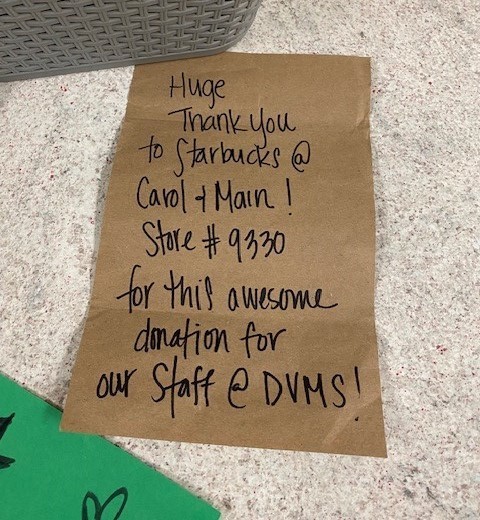 Huge
Thank you
to Starbucks @
Carol & Main!
Store # 9330
for this awesome
donation for
our Staff @ DVMS!